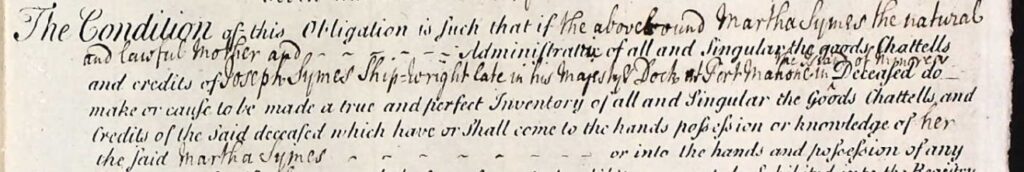 The Condition of this Obligation is Such that if the above bound Martha Symes the natural
and lawful Mother and - - - - - - - Administratrix of all and Singular the goods Chattells
and credits of Joseph Symes Ship-wright late in his Majestys Dock at Port Mahone in the Island of Minorca Deceased do
make or cause to be made a true and perfect Inventory of all and Singular the Goods Chattells and
Credits of the Said deceased which have or Shall come to the hands possession or knowledge of her
the said Martha Symes - - - - - - - or into the hands and possession of any